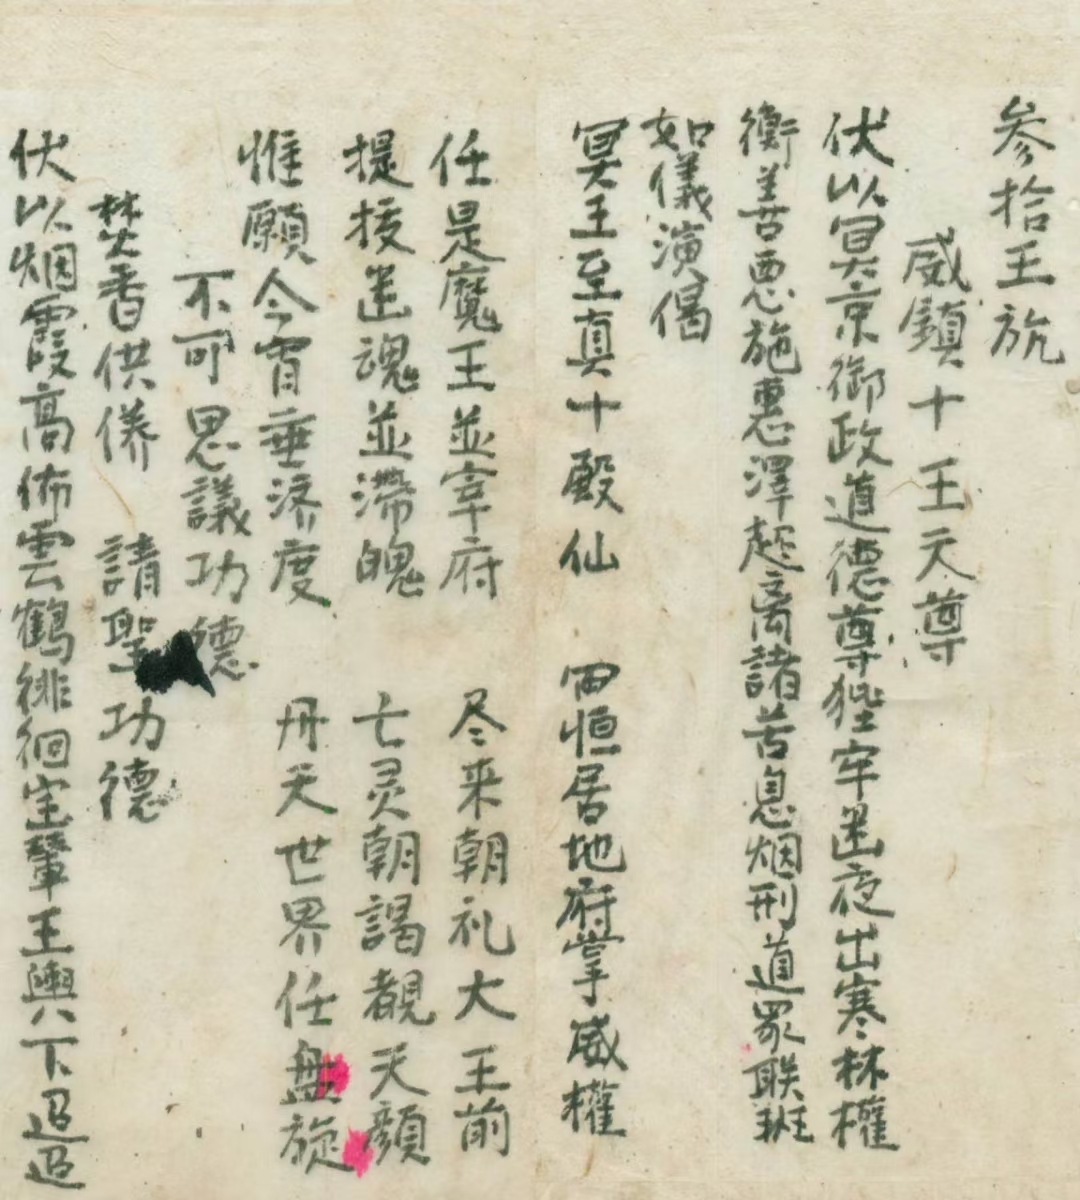 参拾王旂
威鎮十王天尊
伏以冥京御政道德尊狴牢幽夜出寒林權
衡善惡施惠澤超离諸苦息烟刑道眾联班
如儀演偈
冥王至真十殿仙 恒居地府掌威權
任是魔王並宰府 尽来朝礼大王前
提拔幽魂並滞魄 亡灵朝謁覩天顔
惟願今宵垂济度 丹天世界任盤旋
不可思議功德
焚香供养 請聖功德
伏以烟霞高佈雲鶴徘徊宝輦王輿下迢迢